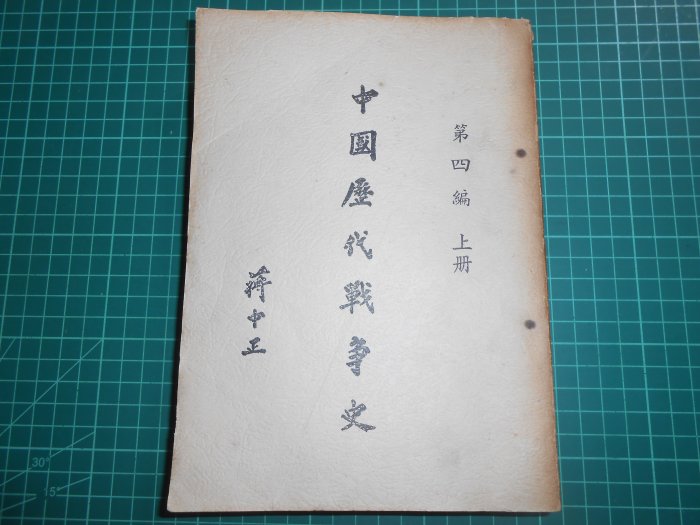 第四編 上册
中國歷代戰爭史
蔣中正
30°
15°